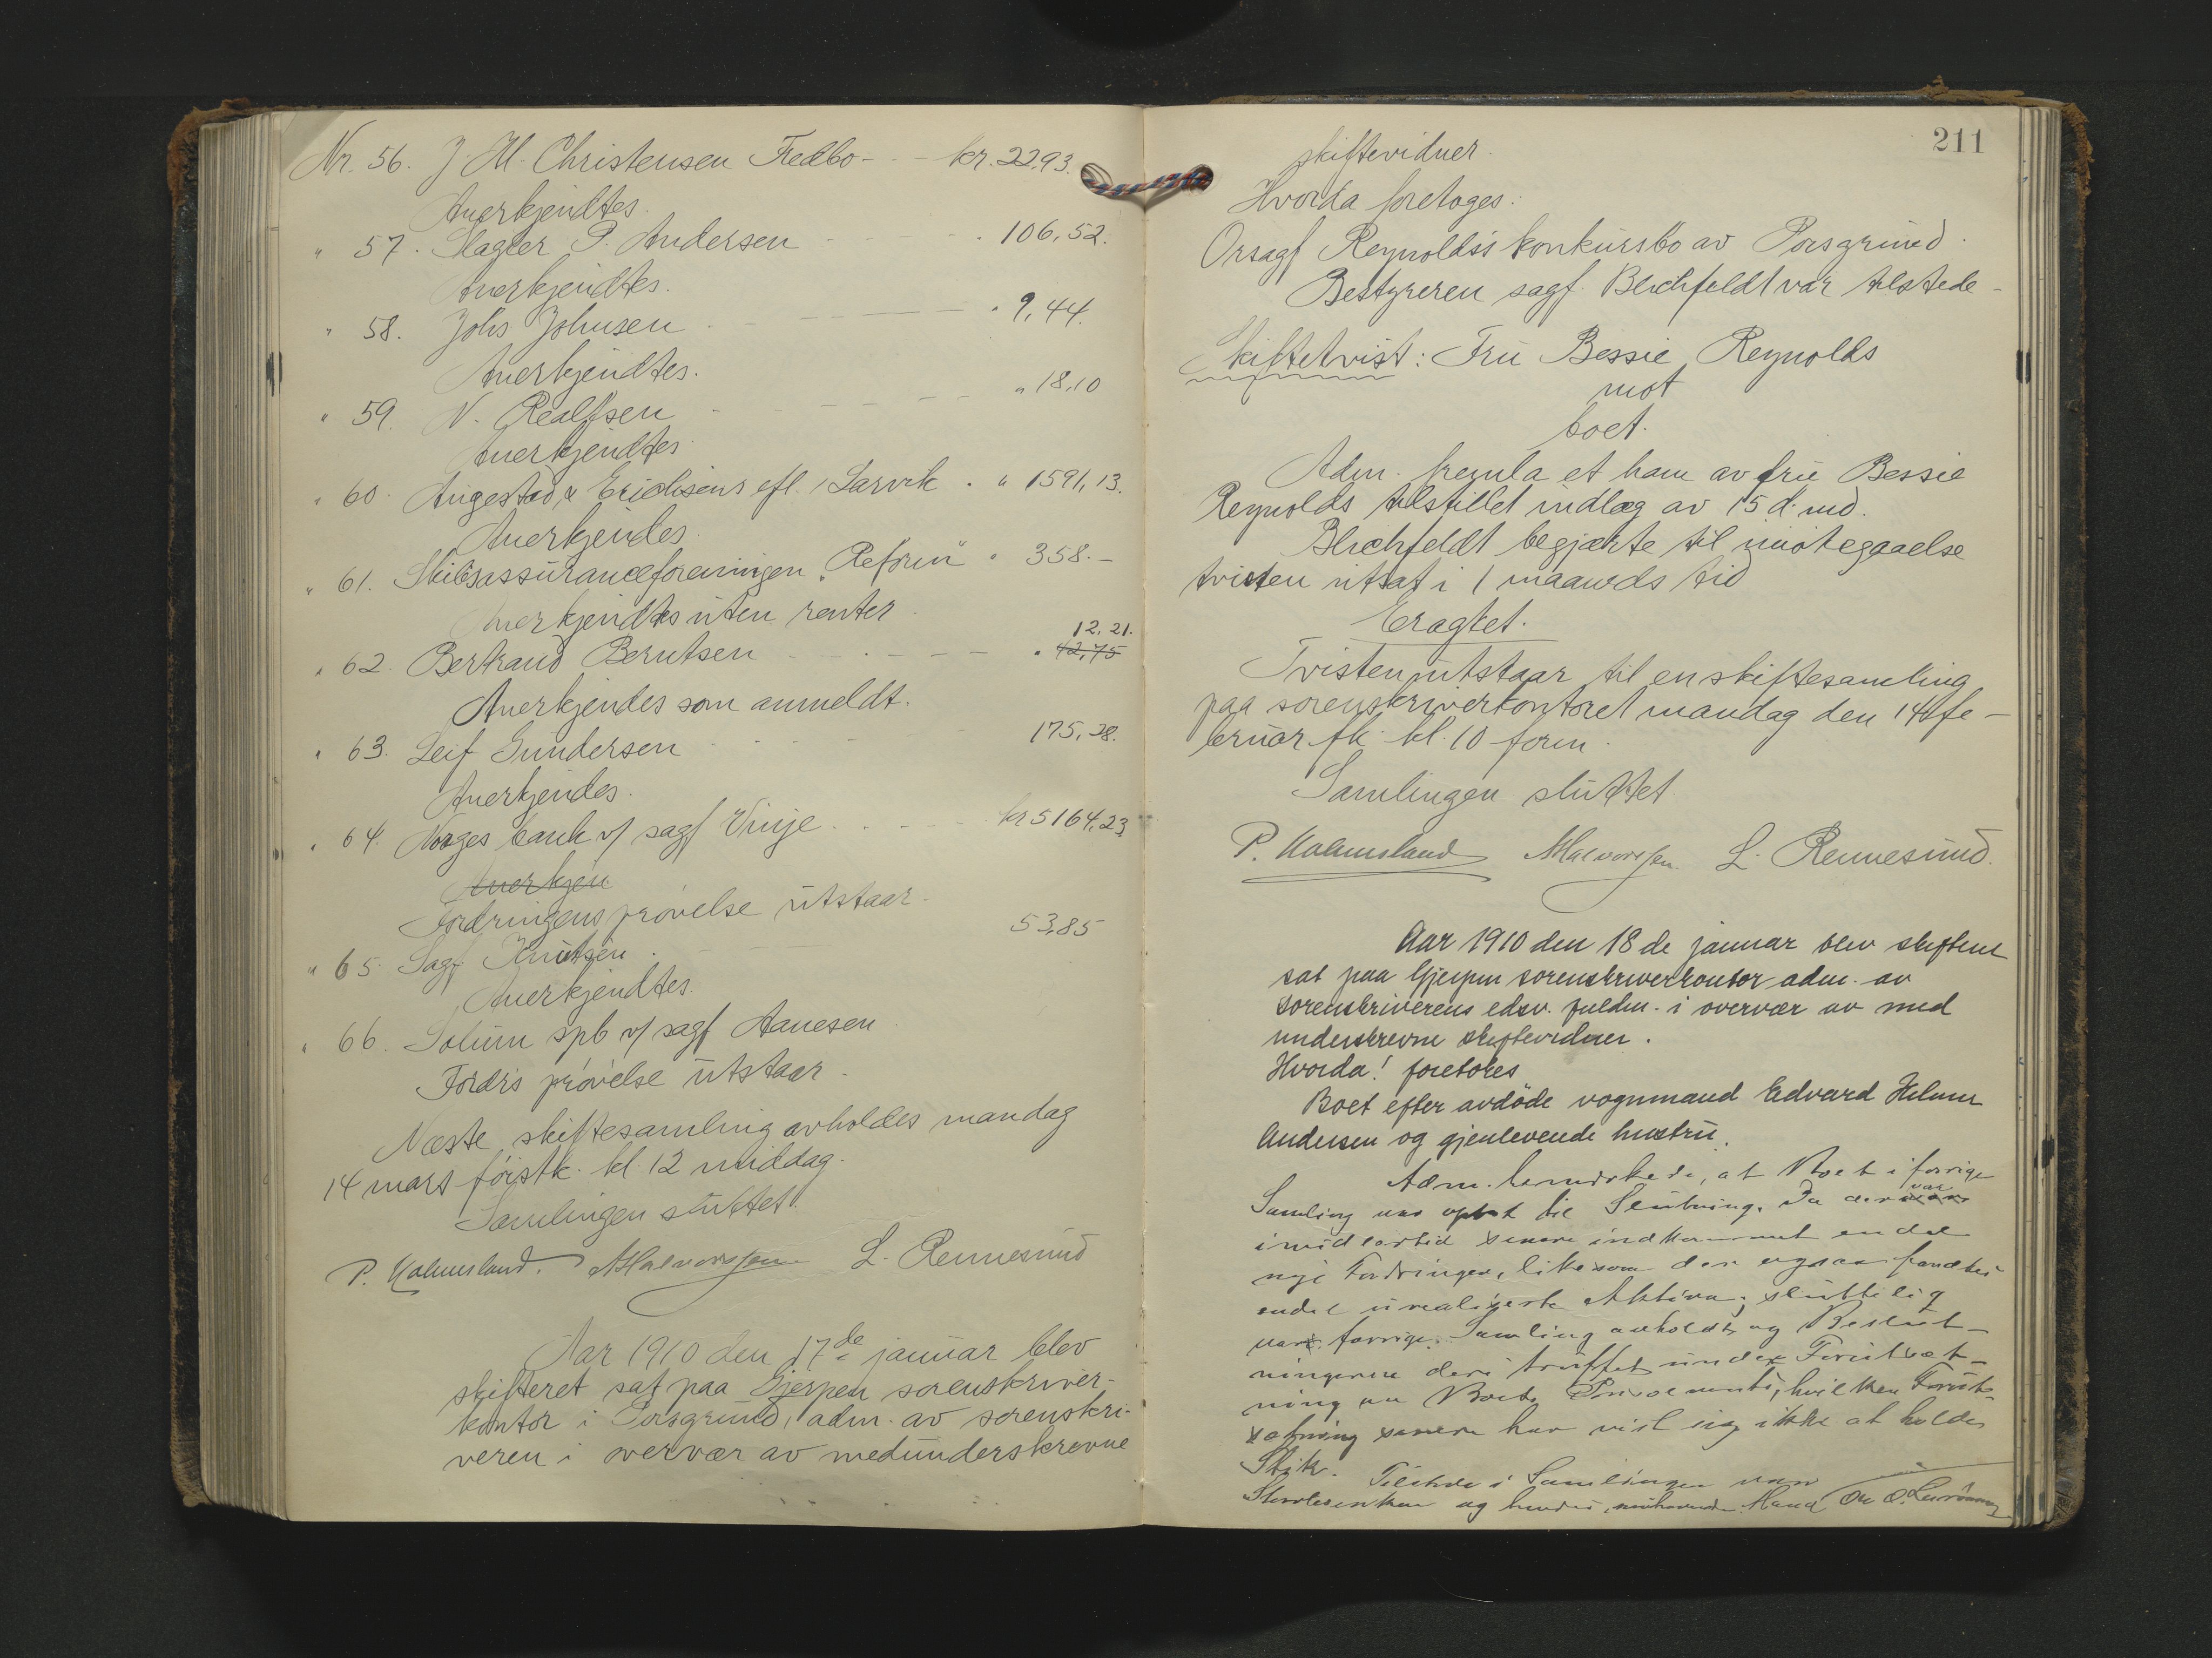 Nr. 56. J M. Christensen Fredbo - - kr. 22.93.
Anerkjendtes.
" 57. Slagter P. Andersen - - - - 106,52.
Anerkjendtes.
" 58. Johs Johnsen - - - - " 9,44.
Anerkjendtes.
" 59. N. Realfsen - - - - - " 18,10
Anerkjendtes.
" 60. Augestad & Erichsens efl. Larvik . " 1591,13.
Anerkjendes.
" 61. Skibsassuranceforeningen "Reform" " 358.-
Anerkjendtes uten renter
12,21.
" 62. Bertrand Berntsen - - - - - " 42,75
Anerkjendes som anmeldt.
" 63. Leif Gundersen - - - 175,28.
Anerkjendes.
" 64. Norges bank v/ sagf Vinje . . - - - kr 5164,23
Anerkjen
Fordringens prøvelse utstaar.
" 65. Sagf Knutsen . - - 53,85
Anerkjendtes.
" 66. Solum spb v/ sagf Aanesen
Fordr's prøvelse utstaar.
Næste skiftesamling avholdes mandag
14 mars førstk. kl. 12 middag.
Samlingen sluttet.
P. Holmsland. Halvorsen L. Rennesund
Aar 1910 den 17de januar blev
skifteret sat paa Gjerpen sorenskriver-
kontor i Porsgrund, adm. av sorenskri-
veren i overvær av medunderskrevne
211
skiftevidner.
Hvorda foretoges:
Orsagf Reynolds's konkursbo av Porsgrund.
Bestyreren sagf. Blichfeldt var tilstede -
Skiftetvist: Fru Bessie Reynolds
mot
boet.
Adm. fremla et ham av fru Bessie
Reynolds tilstillet indlæg av 15 d. md.
Blichfeldt begjærte til imøtegaaelse
tvisten utsat i 1 maaneds tid
Eragtet.
Tvisten utstaar til en skiftesamling
paa sorenskriverkontoret mandag den 14 fe-
bruar fk. kl. 10 form.
Samlingen sluttet
P. Holmsland Halvorsen. L. Rennesund.
Aar 1910 den 18de januar blev skifteret
sat paa Gjerpen sorenskriverkontor adm. av
sorenskriverens edsv. fuldm. i overvær av med
underskrevne skiftevidner.
Hvorda! foretokes
Boet efter avdøde vognmand Edvard Helmer
Andersen og gjenlevende hustru.
Adm. bemerkede, at Boet i forrige
Samling var optat til Slutning. Da der var
imidlertid senere indkommet endel
nye Fordringer, likesom der ogsaa fandtes
endel urealiserte Aktiva; sluttelig
var forrige Samling avholdt og Beslut-
ningerne deri truffet under Forutsæt-
ning av Boets Insolvents, hvilken Forut-
sætning senere har vist sig ikke at holde
Stik. Tilstede i Samlingen var
og hendes nuværende Mand